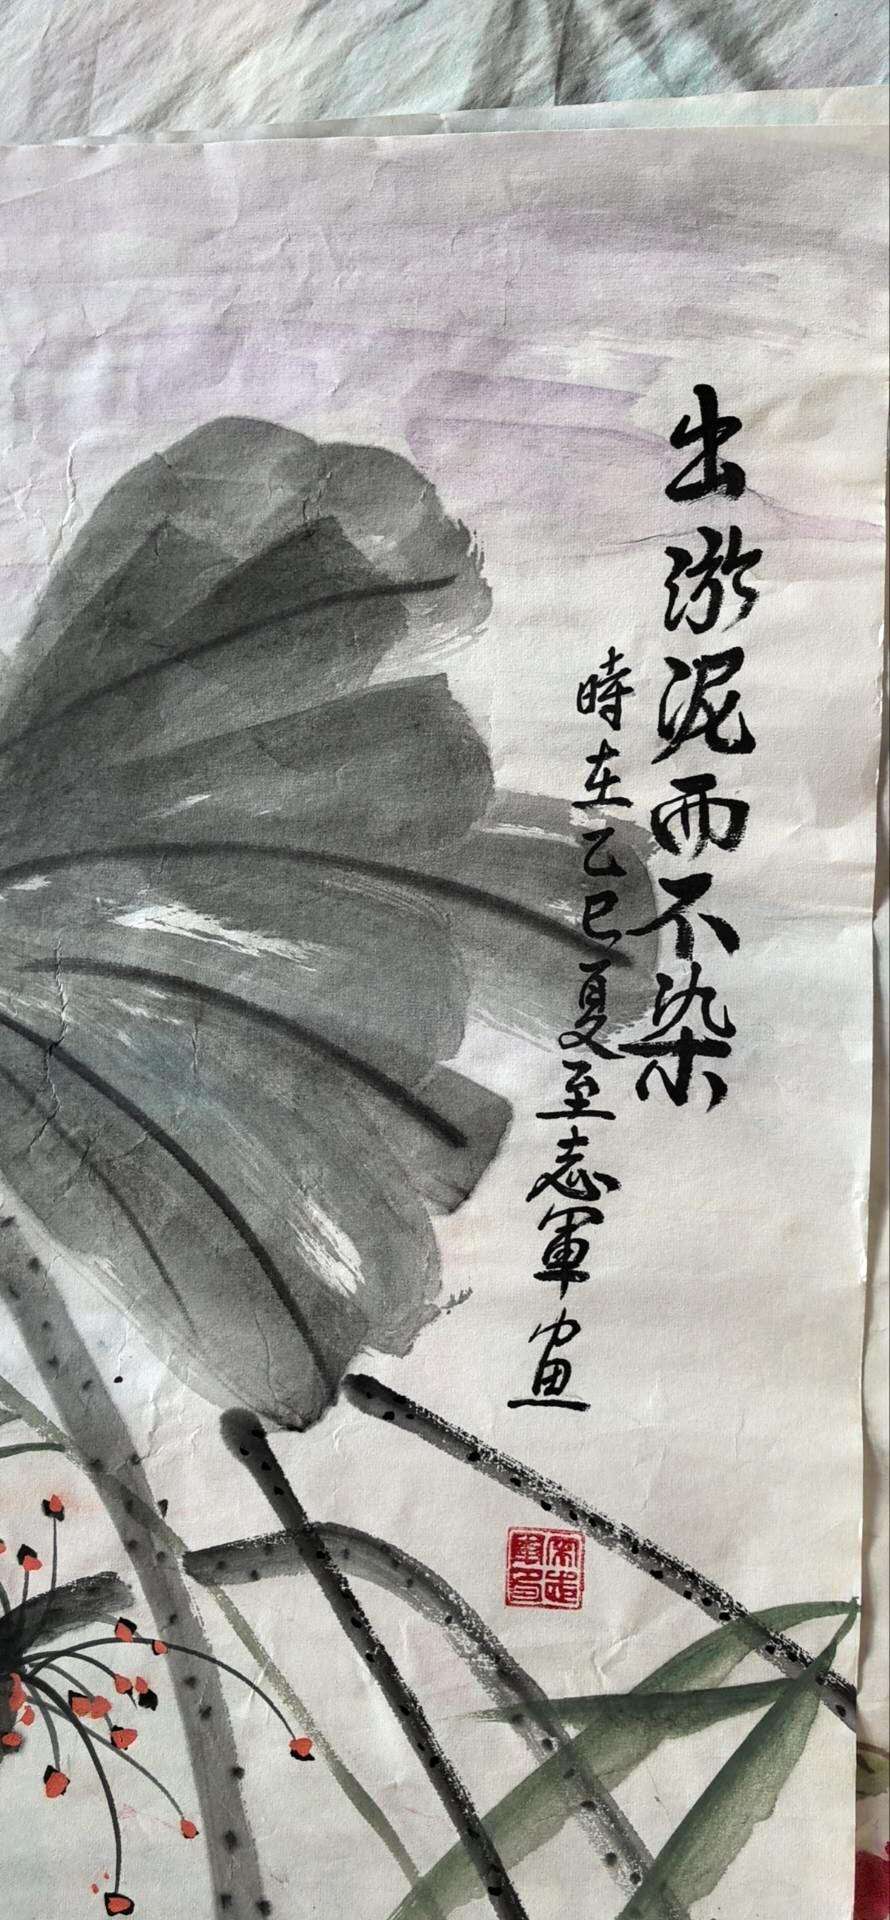 出淤泥而不染
時在乙巳夏至志軍畫